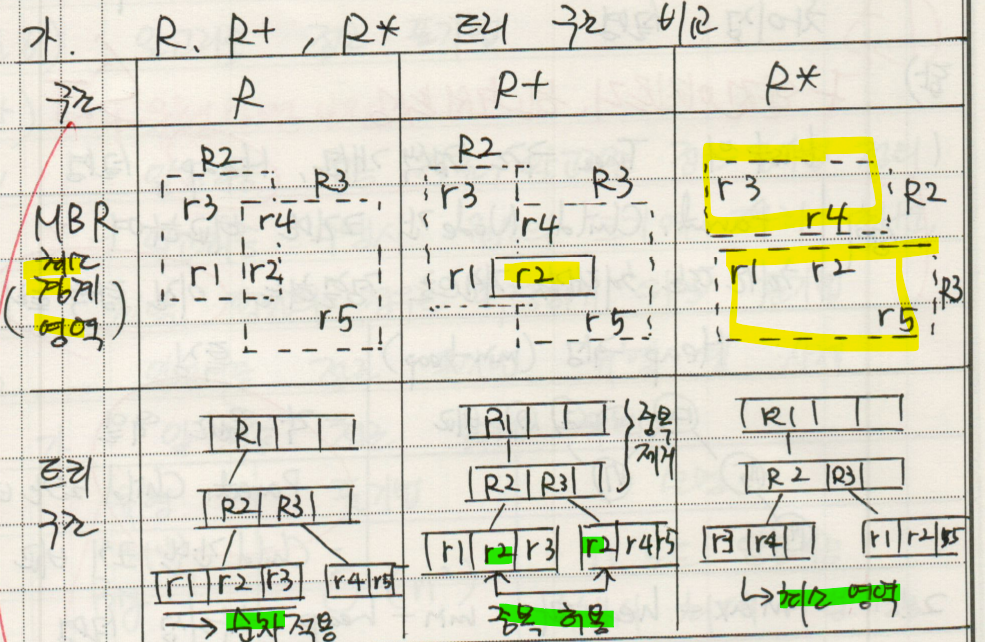 가. R, R+, R* 트리 구조 비교
구조 R R+ R*
MBR
(최소
경계
영역)
R2
r3 R3
r4
r1 r2
r5
R2
r3 R3
r4
r1 r2
r5
r3 R2
r4
r1 r2 R3
r5
트리
구조
R1
R2 R3
r1 r2 r3 r4 r5
→ 순차적용
R1
중복
제거
R2 R3
r1 r2 r3 r2 r4 r5
중복 허용
R1
R2 R3
r3 r4 r1 r2 r5
↳ 최소 영역